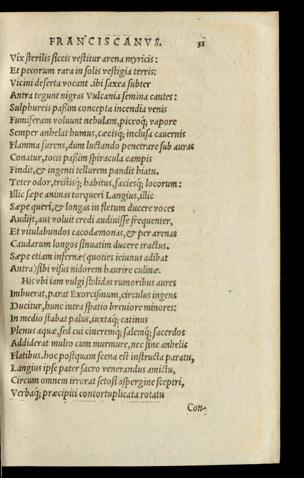 FRANCISCANVS. 31
Vix sterilis siccis vestitur arena myricis:
Et pecorum rara in solis vestigia terris:
Vicini deserta vocant. ibi saxea subter
Antra tegunt nigras Vulcania semina cautes:
Sulphureis paßim concepta incendia venis
Fumiferam voluunt nebulam, piceoq; vapore
Semper anhelat humus, cæcisq; inclusa cauernis
Flamma furens, dum luctando penetrare sub auras
Conatur, totis paßim spiracula campis
Findit, & ingenti tellurem pandit hiatu.
Teter odor, tristisq; habitus, faciesq; locorum:
Illic sæpe animas torqueri Langius, illic
Sæpe queri, & longas in fletum ducere voces
Audijt, aut voluit credi audiuisse frequenter,
Et vitulabundos cacodæmonas, & per arenas
Caudarum longos sinuatim ducere tractus.
Sæpe etiam infernæ (quoties ieiunus adibat
Antra) sibi visus nidorem haurire culinæ.
His vbi iam vulgi stolidas rumoribus aures
Imbuerat, parat Exorcismum, circulus ingens
Ducitur, hunc intra spatio breuiore minores:
In medio stabat palus, iuxtaq; catinus
Plenus aquæ, sed cui cineremq; salemq; sacerdos
Addiderat multo cum murmure, nec sine anhelis
Flatibus. hoc postquam scena est instructa paratu,
Langius ipse pater sacro venerandus amictu,
Circum omnem irrorat setosi aspergine sceptri,
Verbaq; præcipiti contortuplicata rotatu
Con-